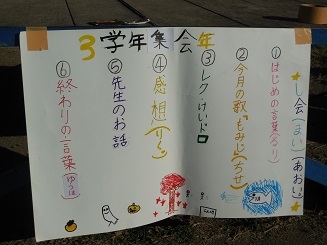 3学年集会
★し会(まい)(あおい)★
①はじめの言葉(るり)
②今月の歌『もみじ』(うせ)
③レクけいドロ
④感想(りん)
⑤先生のお話
⑥終わりの言葉(ゆづは)